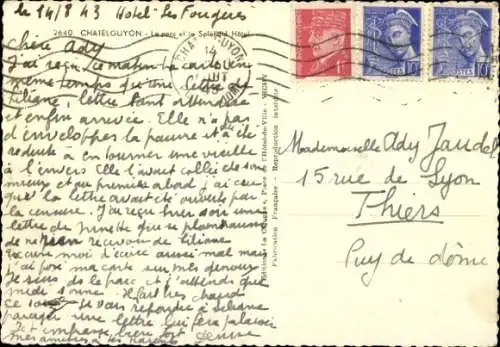 le 14/8 43 Hotel Les Fougères
2640 CHATELGUYON - Le parc et le Splendid Hôtel
Chère Ady
J'ai reçu ce matin ta carte en
même temps qu'une lettre de
Liliane, lettre tant attendue
et enfin arrivée. Elle n'a pas
d'enveloppes la pauvre et a été
reduite à en tourner une vieille
à l'envers. Elle l'avait collée de son
mieux et au premier abord j'ai cru
que la lettre avait été ouverte par
la censure. J'ai reçu hier soir une
lettre de Ginette qui se plaint
de ne rien recevoir de Liliane
Excuse moi d'écrire aussi mal mais
j'ai posé ma carte sur mes genoux
Je suis dans le parc et j'attends que
midi sonne. Il fait très chaud
ce Je vais répondre à Liliane
une lettre qui fera
Je t'embrasse bien fort Denise
mes amitiés à tes parents
CHATELGUYON
14
POSTES
10
POSTES
10
Mademoiselle Ady Jaudel
15 rue de Lyon
Thiers
Puy de dôme
Place de l'Hôtel-de-Ville - VICHY
Fabrication Française - Reproduction interdite